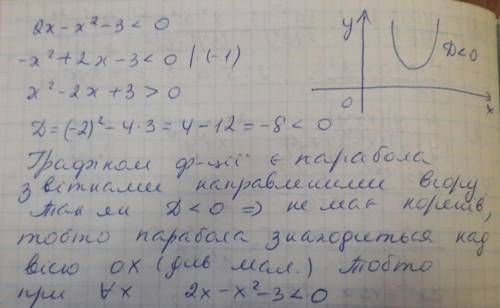 2x - x² - 3 < 0
-x² + 2x - 3 < 0 | · (-1)
x² - 2x + 3 > 0
D = (-2)² - 4·3 = 4 - 12 = -8 < 0
y
D < 0
0
x
Графіком ф-ції є парабола
з вітками направленими вгору.
Так як D < 0 => не має коренів,
тобто парабола знаходиться над
вісю OX (див мал.) Тобто
при ∀x 2x - x² - 3 < 0